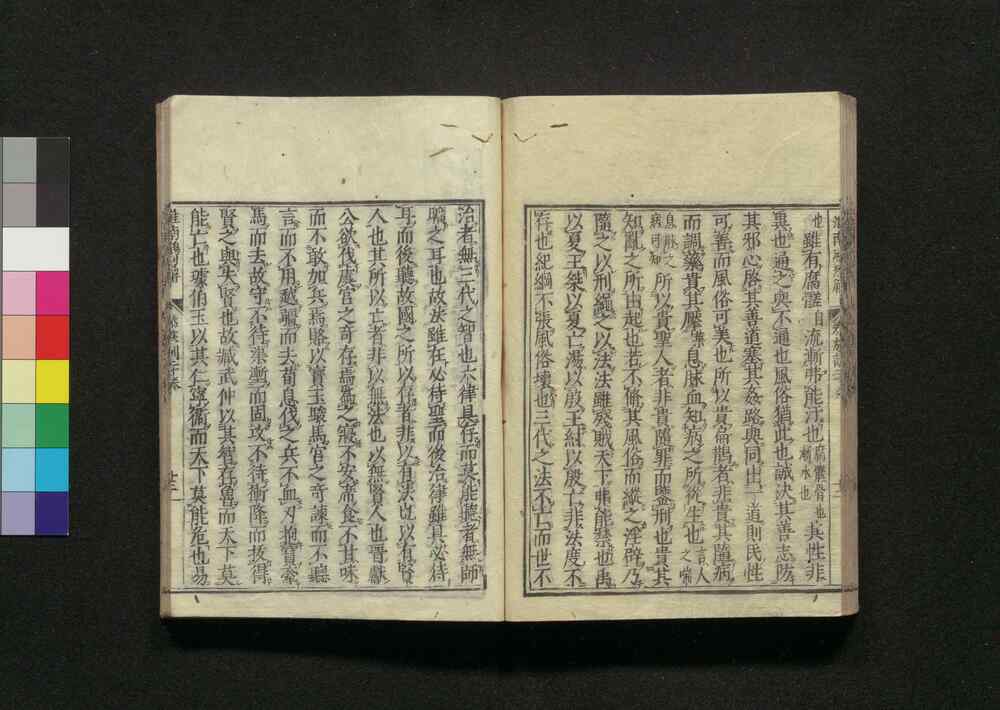 也雖有腐髊自流漸弗能汙也腐髊骨也漸水也其性非
異也通之與不通也風俗猶此也誠決其善志防
其邪心啓其善道塞其姦路與同出一道則民性
可善而風俗可美也所以貴扁鵲者非貴其隨病
而調藥貴其擪息脉血知病之所從生也言人之喘
息脉之病可知所以貴聖人者非貴隨罪而鑒刑也貴其
知亂之所由起也若不脩其風俗而縱之淫辟乃
隨之以刑繩之以法法雖殘賊天下弗能禁也禹
以夏王桀以夏亡湯以殷王紂以殷亡非法度不
存也紀綱不張風俗壞也三代之法不亡而世不
治者無三代之智也六律具存而莫能聽者無師
曠之耳也故法雖在必待聖而後治律雖具必待
耳而後聽故國之所以存者非以有法也以有賢
人也其所以亡者非以無法也以無賢人也晉獻
公欲伐虞宮之奇存焉爲之寢不安席食不甘味
而不敢加兵焉賂以寶玉駿馬宮之奇諫而不聽
言而不用越疆而去荀息伐之兵不血刃抱寶牽
馬而去故守不待渠壍而固攻不待衝隆而拔得
賢之與失賢也故臧武仲以其智存魯而天下莫
能亡也璩伯玉以其仁寧衞而天下莫能危也易